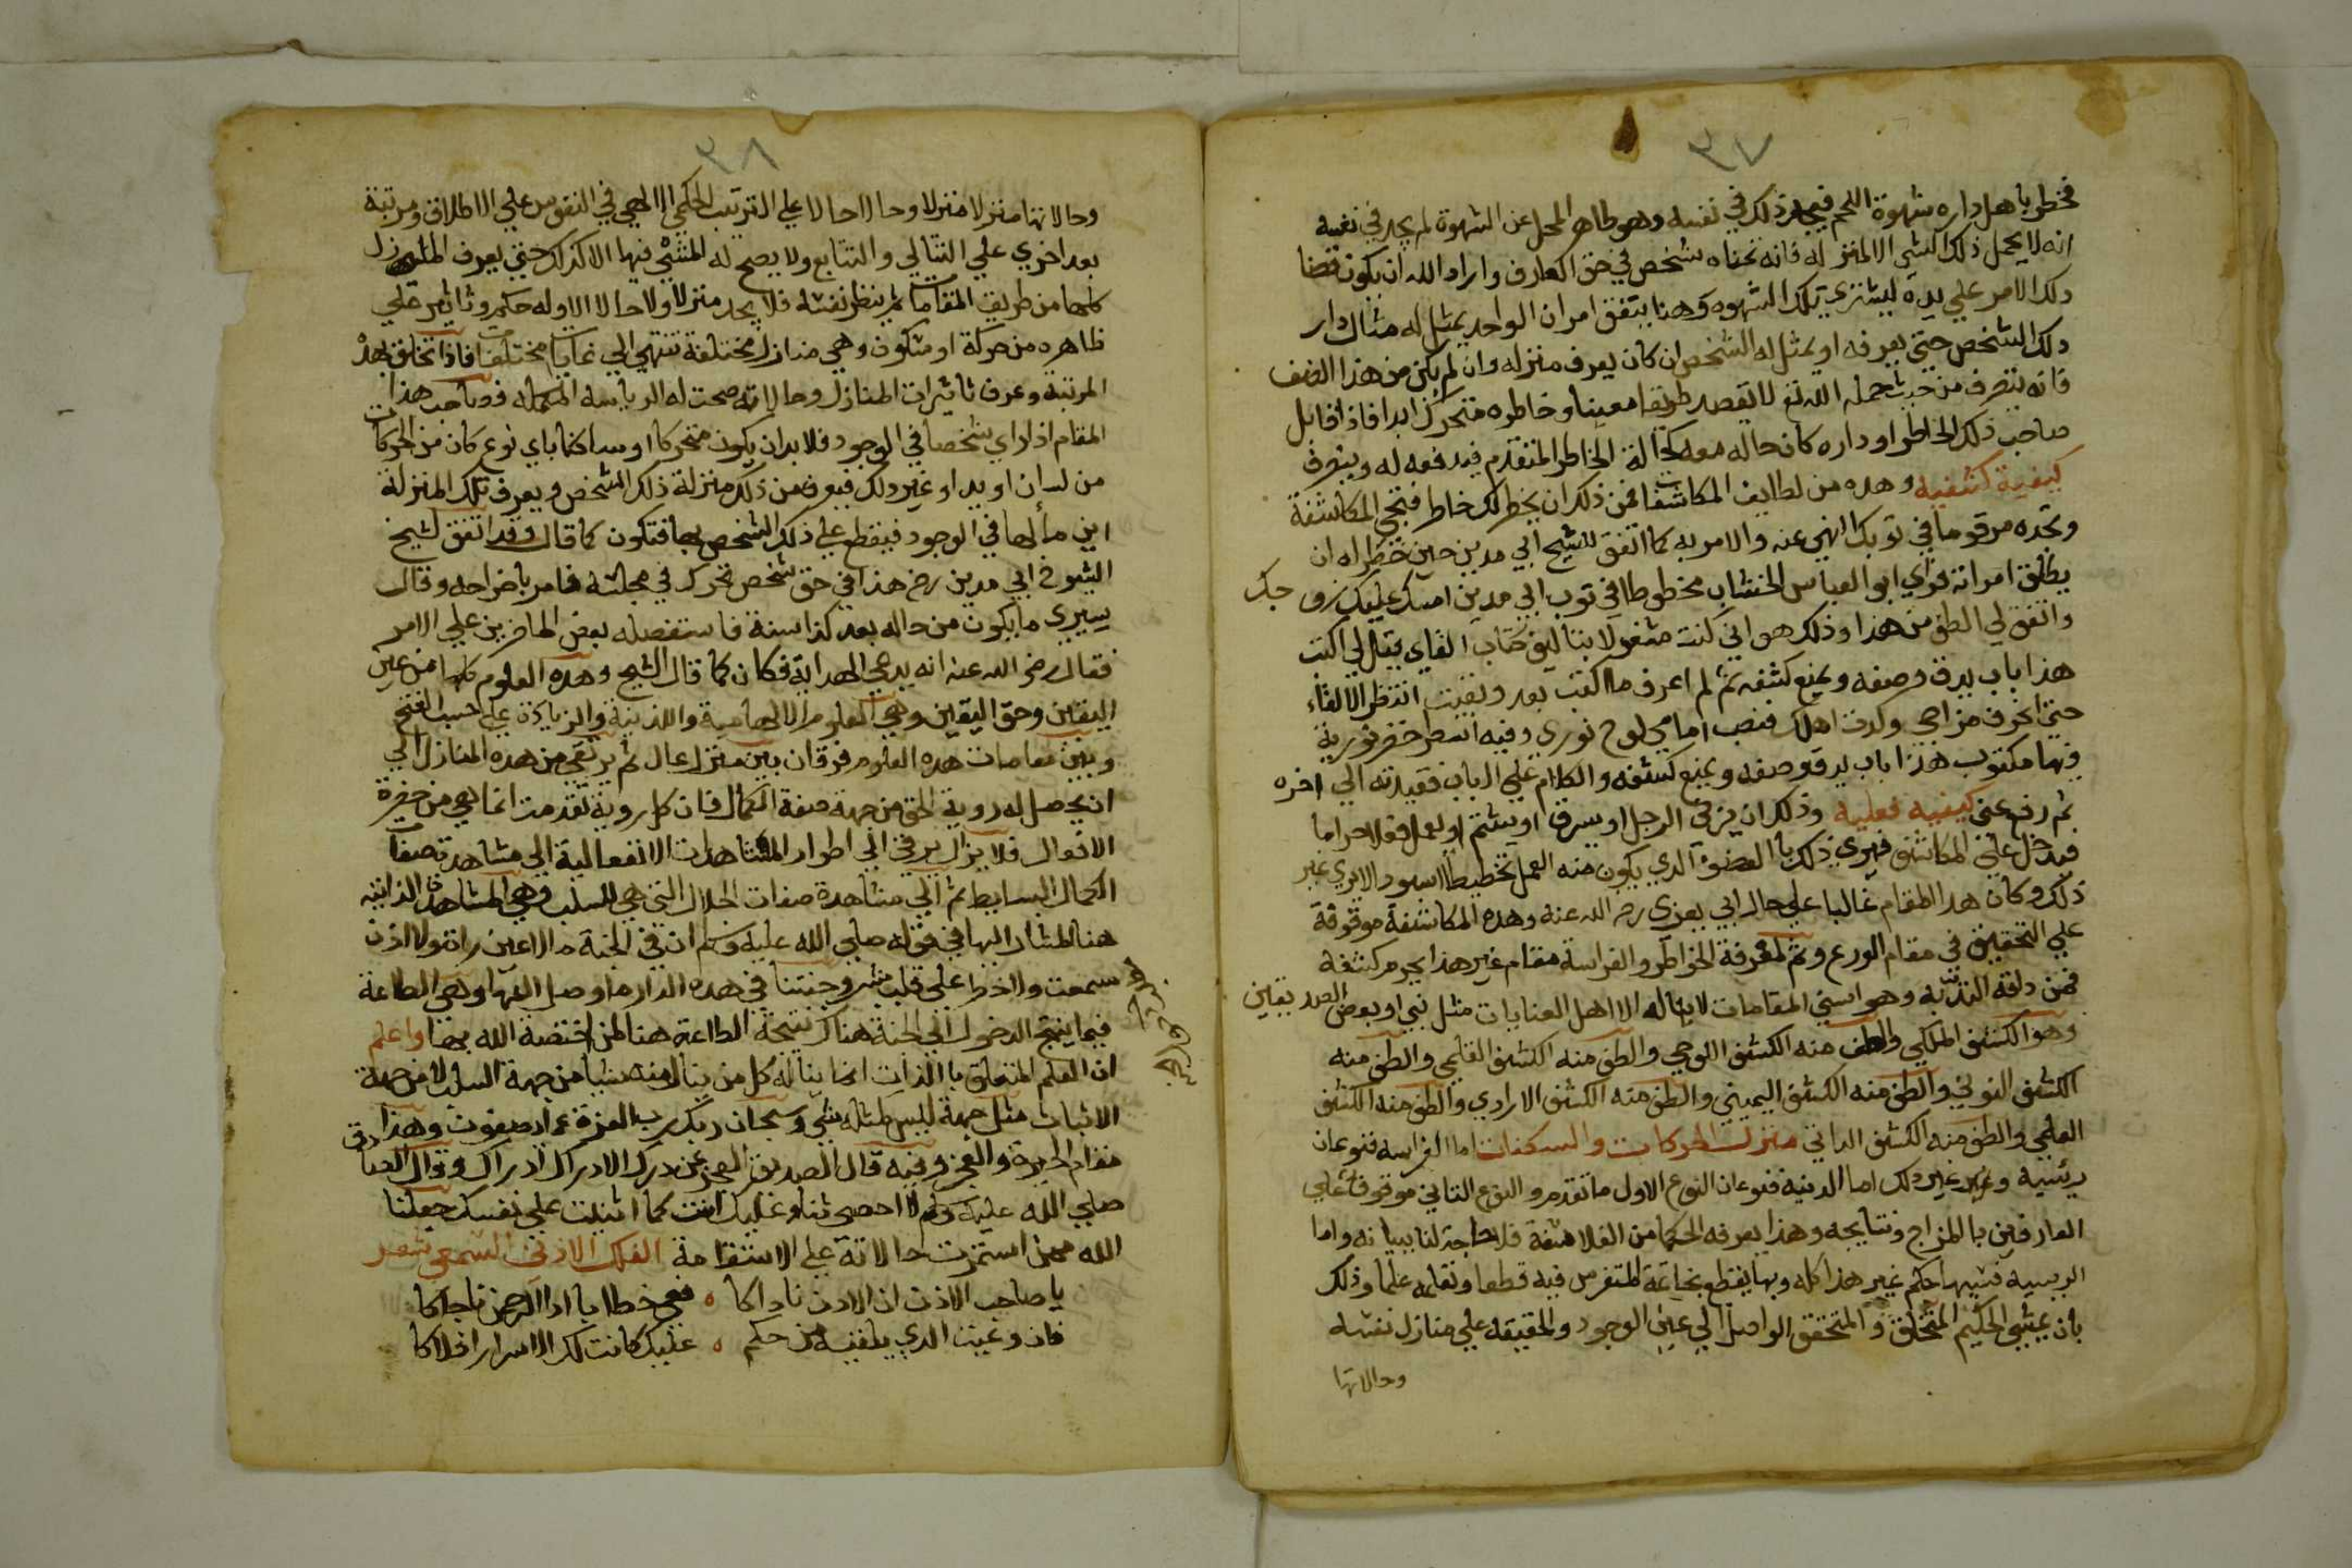 ٣٧
فخطر باهل داره شهوة اللحم فيجد ذلك في نفسه وهو طاهر المحل عن الشهوة لم يجد في نفسه
انه لا يحمل ذلك الشي الا لمنزله فانه نحناه شخص في حق العارف واراد الله ان يكون قضا
ذلك الامر علي يده ليشتري تلك الشهوه وهنا يتفق امران الواحد يمثل له مثال دار
ذلك الشخص حتي يعرفه او يمثل له الشخص ان كان يعرف منزله وان لم يكن من هذا الصنف
فانه يتصرف من حيث حمله الله تع لا بقصد طريقا معينا وخاطره متحرك ابدا فاذا قابل
صاحب ذلك الخاطر او داره كان حاله معه كحالة الخاطر المتقدم فيدفعه له ويتصرف
كيفية كشفيه وهده من لطايف المكاشفات فمن ذلك ان يخطر لك خاطر فتجي المكاشفة
وتجده مرقوما في ثوبك النهي عنه والامر به كما اتفق للشيخ ابي مدين حين خطر له ان
يطلق امراته فراي ابو العباس الخشاب مخطوطا في ثوب ابي مدين امسك عليك زوجك
واتفق لي الطف من هذا وذلك هو اني كنت مشغولا بتاليف كتاب القاي فقيل لي اكتب
هذا باب يدق وصفه ويمنع كشفه ثم لم اعرف ما اكتب بعد وبقيت انتظر الالقاء
حتي انحرف مزاجي وكدت اهلك فنصب امامي لوح نوري وفيه اسطر خضر نورية
فيها مكتوب هذا باب يدق وصفه ويمنع كشفه والكلام علي الباب فقيدته الي اخره
ثم رفع عني كيفيه فعليه وذلك ان يزني الرجل او يسرق او يشتم او يعمل فعلا حراما
فيدخل علي المكاشف فيري ذلك بالعضو الدي يكون منه العمل تخطيطا اسود لا يري غير
ذلك وكان هدا المقام غالبا علي حال ابي يعزي رحمه الله عنه وهده المكاشفة موقوفة
علي التحقيق في مقام الورع وثم لمعرفة الخواطر والفراسة مقام غير هذا يحرم كشفه
فمن دلقه التنبيه وهو اسني المقامات لا يناله الا اهل العنايات مثل نبي او بعض الصديقين
وهو الكشف الملكي والطف منه الكشف اللوحي والطف منه الكشف القلمي والطف منه
الكشف النوني والطف منه الكشف اليميني والطف منه الكشف الارادي والطف منه الكشف
العلمي والطف منه الكشف الداتي منزل الحركات والسكنات اما الفراسه فنوعان
رئسية وغير غير ذلك اما الدنيه فنوعان النوع الاول ما تقدم والنوع الثاني موقوفا علي
العارفين بالمزاج ونتايجه وهذا يعرفه الحكما من الفلاسفة فلا حاجة لنا ببيانه واما
الربسيه فشيها حكم غير هذا كله وبها يقطع بخاتمة المتفرس فيه قطعا ونعلمه علما وذلك
بان يمشي الحكيم المتخلق والمتحقق الواصل الي عين الوجود والحقيقه علي منازل نفسه
وحالاتها
٣٨
وحالاتها منزلا منزلا وحالا حالا علي الترتيب الحكمي الالهي في النفوس علي الاطلاق ومرتبة
بعد اخري علي التتالي والتتابع ولا يصح له المشي فيها الا كذلك حتي يعرف المنازل
كلها من طريق المقامات ثم ينظر نفسه فلا يجد منزلا ولا حالا الا وله حكم وتاثير علي
ظاهره من حركة او سكون وهي منازل مختلفة تنتهي الي غايات مختلفات فاذا تخلق بهذه
المرتبة وعرف تاثيرات المنازل وحالاته صحت له الرياسه المكمله فصاحب هذا
المقام اذا راي شخصا في الوجود فلا بد ان يكون متحركا او ساكنا باي نوع كان من الحركات
من لسان او يد او غير ذلك فيعرف من ذلك منزلة ذلك الشخص ويعرف تلك المنزلة
اين مآلها في الوجود فيقطع علي ذلك الشخص بها فتكون كما قال وقد اتفق لشيخ
الشيوخ ابي مدين رضه هذا في حق شخص تحرك في مجلسه فامر باخراجه وقال
سيري ما يكون من حاله بعد كذا سنة فاستفصله بعض الحاضرين علي الامر
فقال رضي الله عنه انه يدعي الهداية فكان كما قال الشيخ وهده العلوم كلها من عين
اليقين وحق اليقين وهي العلوم الالهامية واللدنية والزيادة علي حسب الفتح
وبين مقامات هده العلوم فرقان بين منزل عال ثم يرتقي من هده المنازل الي
ان يحصل له روية الحق من جهة صفة الكمال فان كل روية تقدمت انما هي من حضرة
الافعال فلا يزال يرقي الي اطوار المشاهدات الانفعالية الي مشاهد تصفات
الكمال البسايط ثم الي مشاهدة صفات الجلال التي هي السلب وهي المشاهدة الذاتيه
هنا المشار اليها في قوله صلي الله عليه وسلم ان في الجنة ما لا عين رات ولا اذن
سمعت ولا خطر علي قلب بشر وجنتنا في هده الدار ما وصل اليها وهي الطاعة
فبما ينتج الدخول الي الجنة هناك نتيجة الطاعة هنا لمن اختصه الله بها واعلم
ان العلم المتعلق بالذات انما يناله كل من ينال منه شيا من جهة السلب لا من جهة
الاثبات مثل جهة ليس كمثله شي وسبحان ربك رب العزة عما يصفون وهذا
مقام الحيرة والعجز وفيه قال الصديق العجز عن درك الادراك ادراك وقال الصادق
صلي الله عليه وسلم لا احصي ثناء عليك انت كما اثنيت علي نفسك جعلنا
الله ممن استمرت حالاته علي الاستقامة الفلك الادني السمعي شعر
يا صاحب الاذن ان الاذن ناداكا ه فع خطابا ادا الرحمن ناجاكا
فان وعيت الدي يلقيه من حكم ه عليك كانت لك الاسرار افلاكا